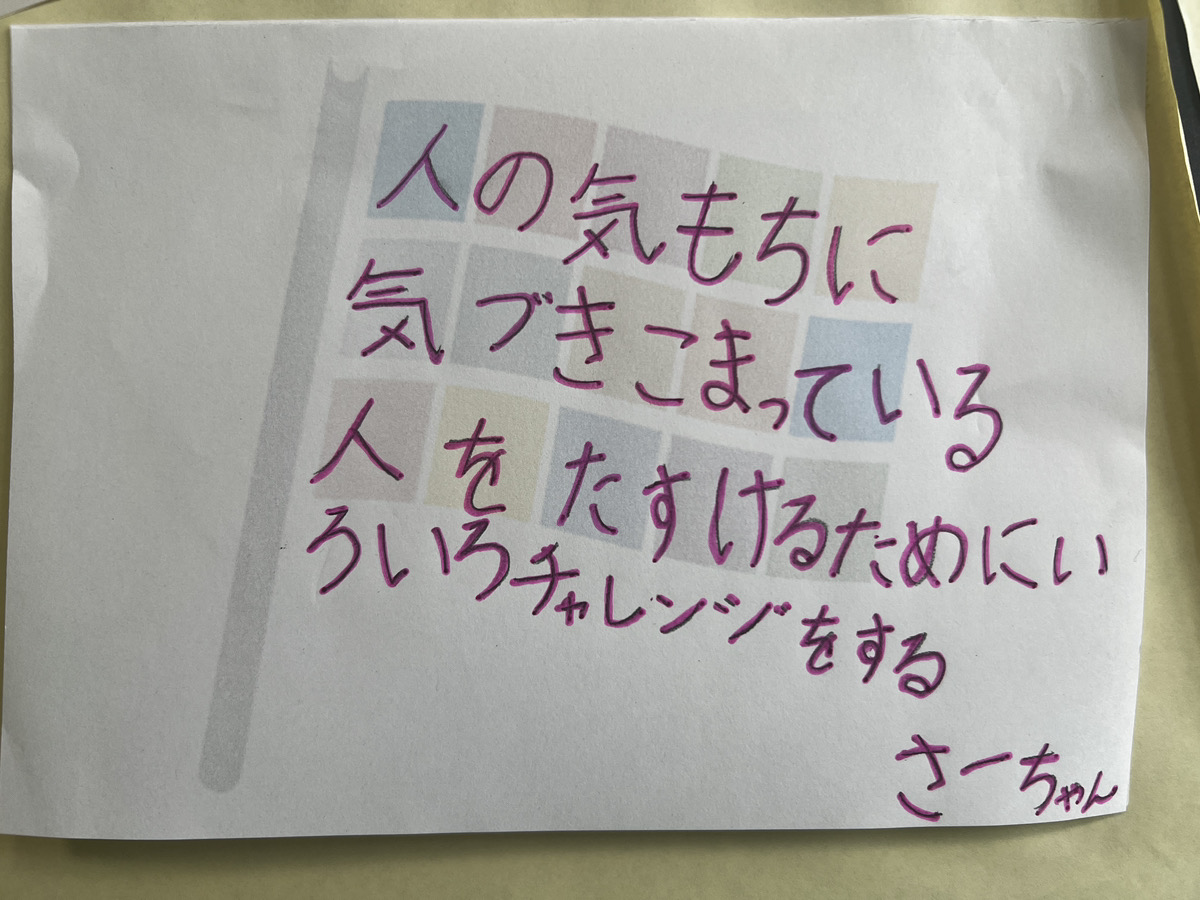 人の気もちに
気づきこまっている
人をたすけるためにい
ろいろチャレンジをする
さーちゃん